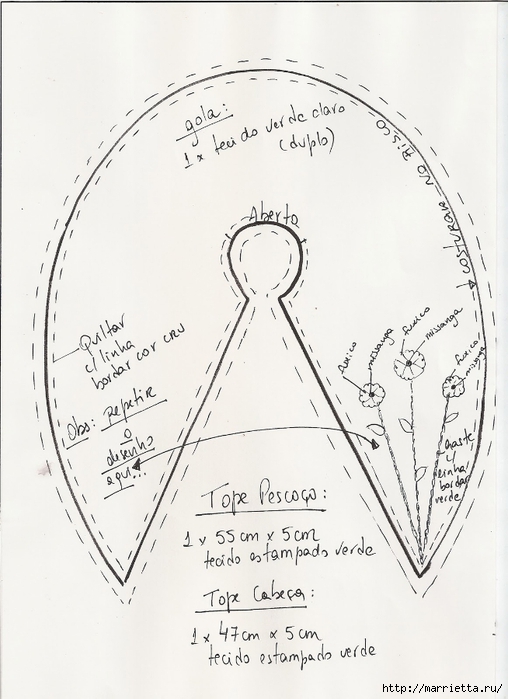 gola:
1 x tecido verde claro
(duplo)
COSTURAR NO RISCO
Aberto
Quiltar
c/ linha
bordar cor cru
Obs: Repetir
o
desenho
aqui...
fuxico
missanga
fuxico
missanga
fuxico
missanga
haste
c/
linha
bordar
verde
Tope Pescoço:
1 x 55cm x 5cm
tecido estampado verde
Tope Cabeça:
1 x 47cm x 5cm
tecido estampado verde
http://marrietta.ru/